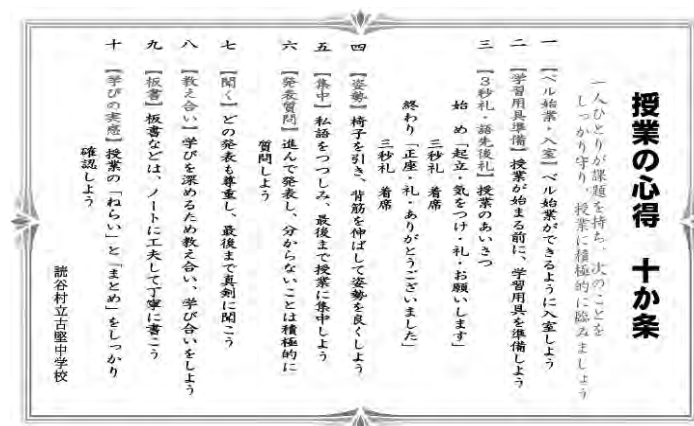 授業の心得 十か条
一人ひとりが課題を持ち、次のことを
しっかり守り、授業に積極的に臨みましょう
一 【ベル始業・入室】ベル始業ができるように入室しよう
二 【学習用具準備】授業が始まる前に、学習用具を準備しよう
三 【3秒礼・語先後礼】授業のあいさつ
始 め「起立・気をつけ・礼・お願いします」
三秒礼 着席
終わり「正座・礼・ありがとうございました」
三秒礼 着席
四 【姿勢】椅子を引き、背筋を伸ばして姿勢を良くしよう
五 【集中】私語をつつしみ、最後まで授業に集中しよう
六 【発表質問】進んで発表し、分からないことは積極的に
質問しよう
七 【聞く】どの発表も尊重し、最後まで真剣に聞こう
八 【教え合い】学びを深めるため教え合い、学び合いをしよう
九 【板書】板書などは、ノートに工夫して丁寧に書こう
十 【学びの実感】授業の「ねらい」と「まとめ」をしっかり
確認しよう
読谷村立古堅中学校